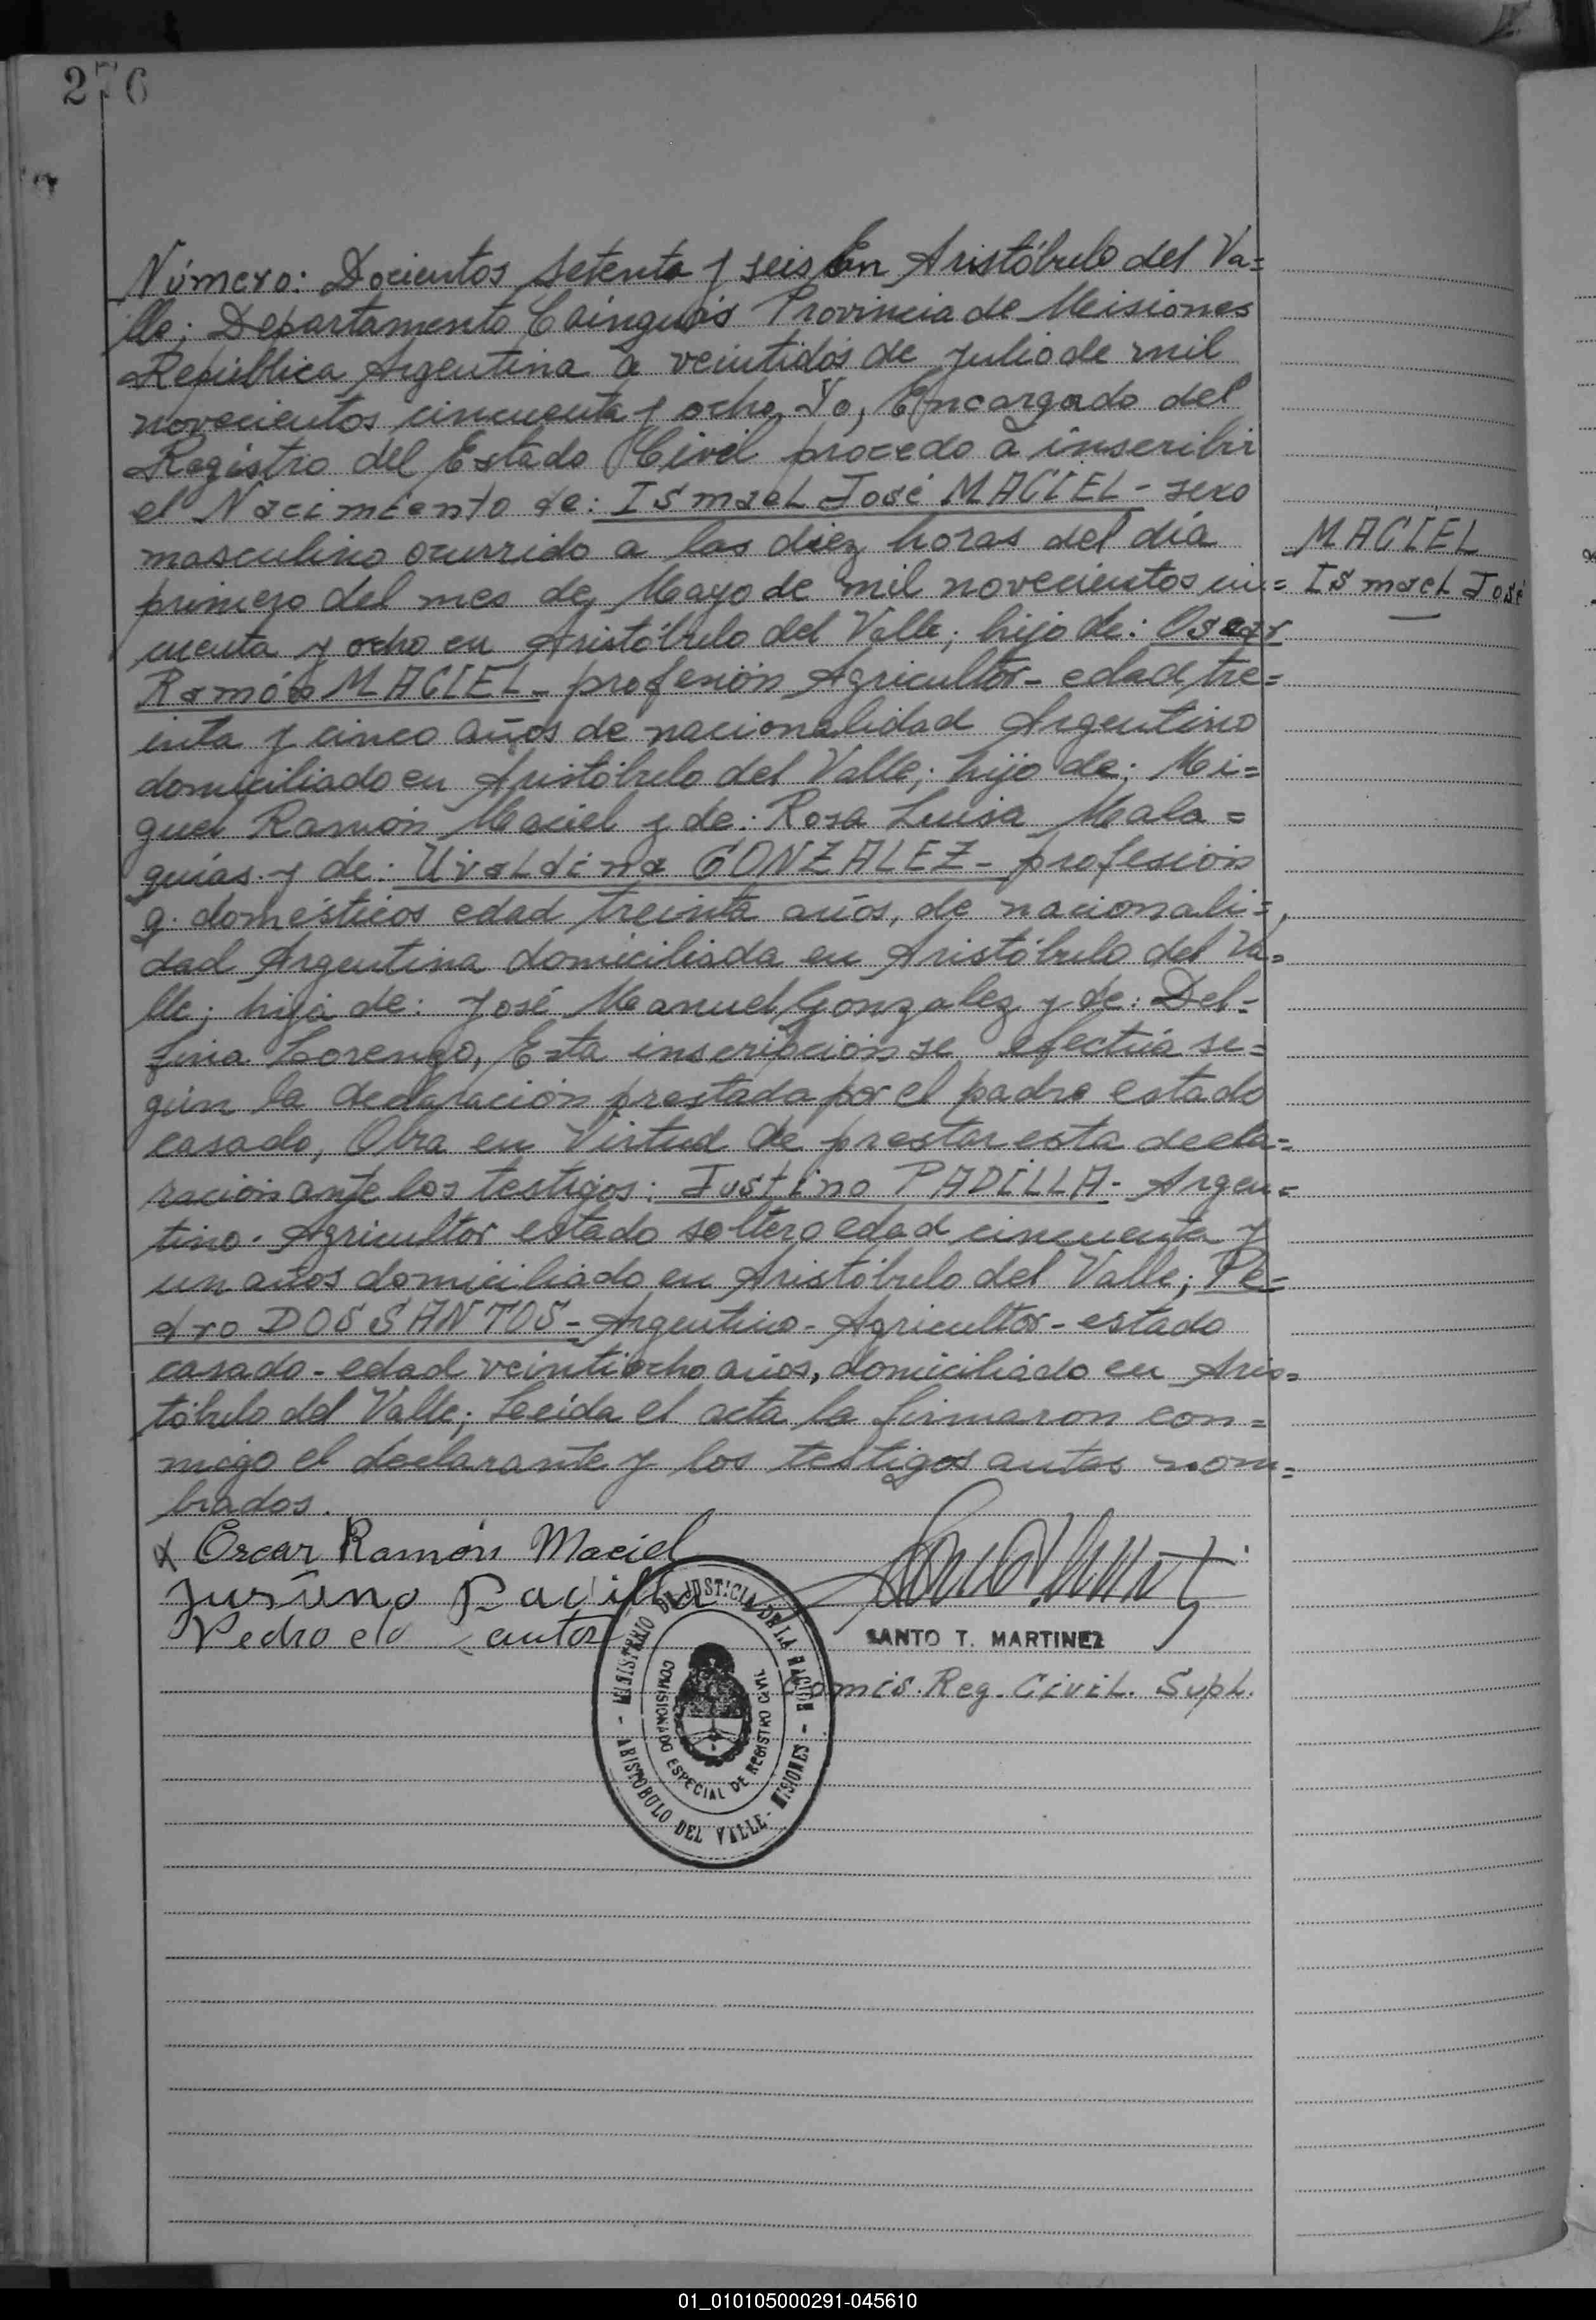 276
Número: Docientos setenta y seis En Aristóbulo del Va=
lle; Departamento Cainguás Provincia de Misiones
República Argentina a veintidós de Julio de mil
novecientos cincuenta y ocho, Yo, Encargado del
Registro del Estado Civil procedo a inscribir
el Nacimiento de: Ismael José MACIEL - sexo
masculino ocurrido a las diez horas del día
primero del mes de Mayo de mil novecientos cin=
cuenta y ocho en Aristóbulo del Valle; hijo de: Oscar
Ramón MACIEL - profesión Agricultor - edad tre=
inta y cinco años de nacionalidad Argentino
domiciliado en Aristóbulo del Valle; hijo de; Mi=
guel Ramón Maciel y de: Rosa Luisa Mala=
quías y de: Uvaldina GONZALEZ - profesión
q. domésticos edad treinta años, de nacionali=
dad Argentina domiciliada en Aristóbulo del Va=
lle; hija de: José Manuel Gonzalez y de: Del-
fina Lorenzo, Esta inscripción se efectúa se=
gún la declaración prestada por el padre estado
casado, Obra en Virtud de prestar esta decla=
ración ante los testigos: Justino PADILLA - Argen=
tino. Agricultor estado soltero edad cincuenta y
un años domiciliado en Aristóbulo del Valle; Pe=
dro DOS SANTOS - Argentino - Agricultor - estado
casado - edad veintiocho años, domiciliado en Aris=
tóbulo del Valle; Leída el acta la firmaron con=
migo el declarante y los testigos antes nom=
brados.
MACIEL
Ismael José
x Oscar Ramón Maciel
Justino Padilla
Pedro do santos
SANTO T. MARTINEZ
Comis. Reg. Civil. Supl.
MINISTERIO DE JUSTICIA DE LA NACION
COMISIONADO ESPECIAL DE REGISTRO CIVIL
- ARISTOBULO DEL VALLE - MISIONES -
01_010105000291-045610